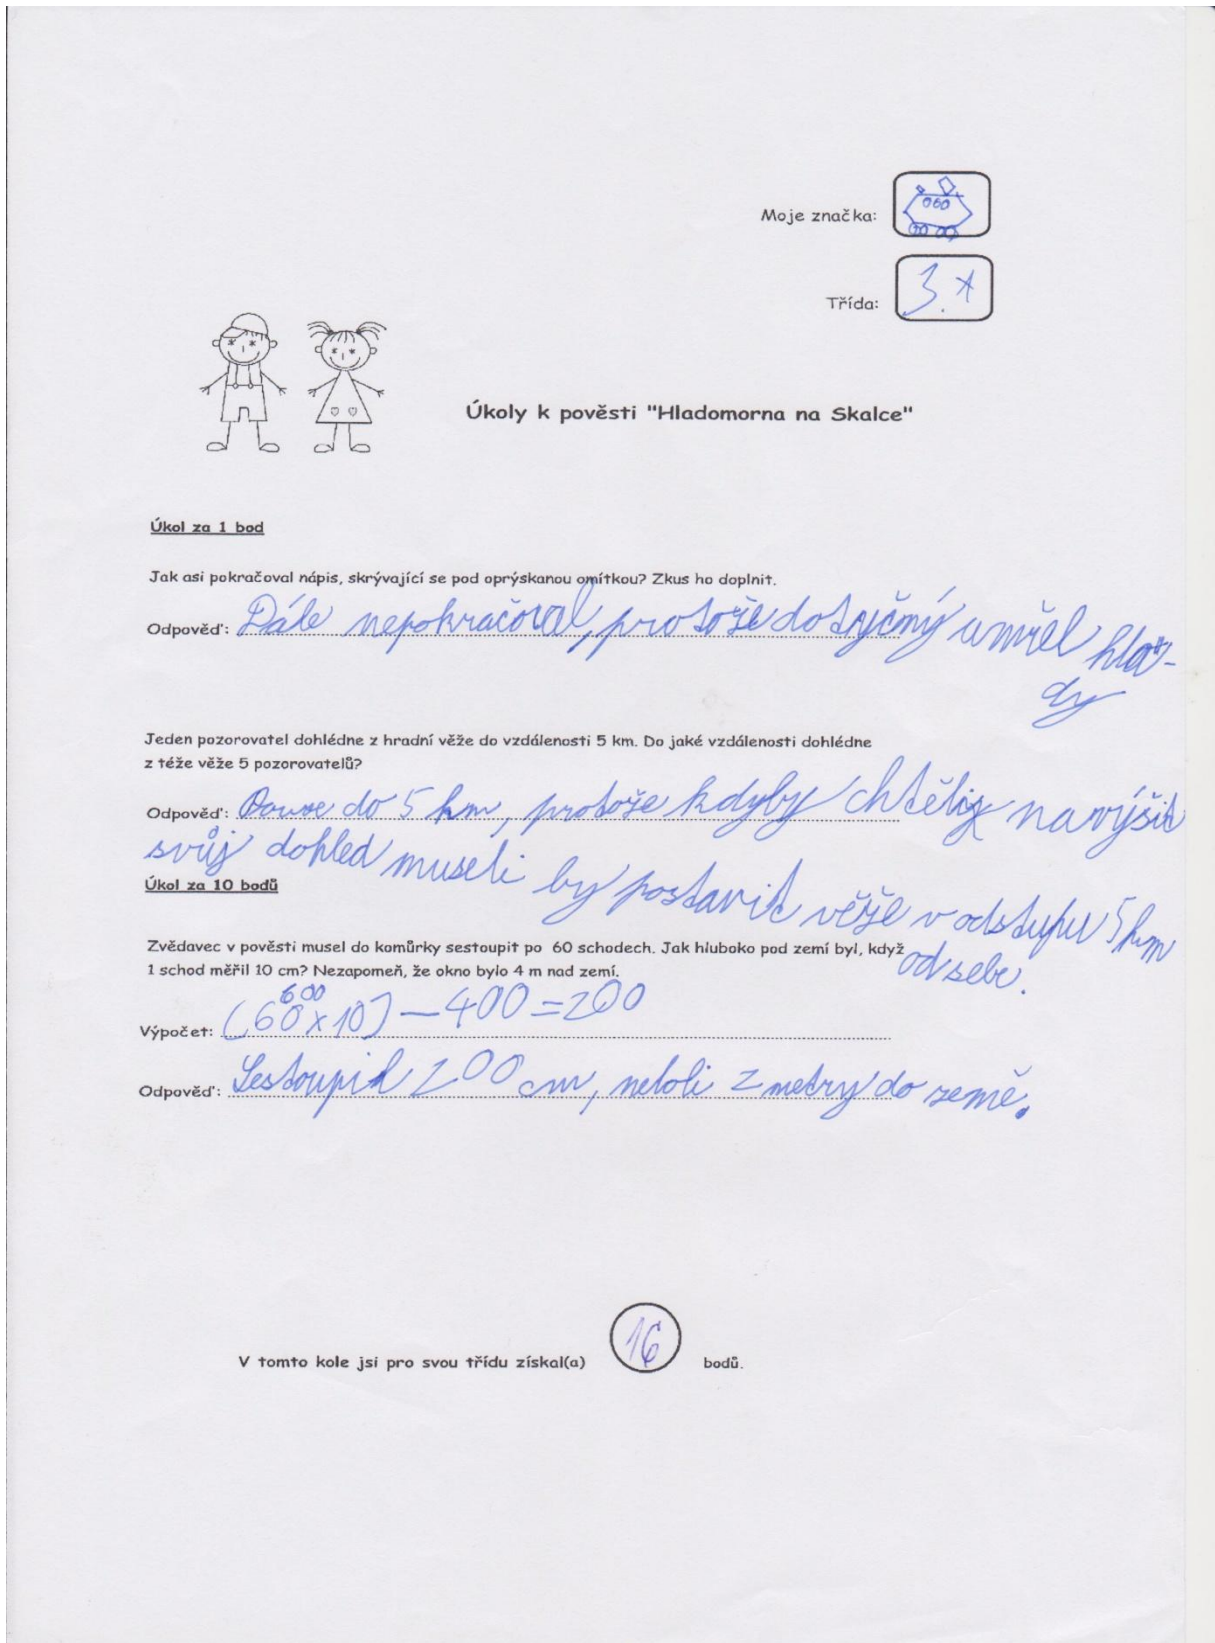 Moje značka:
Třída: 3.A
Úkoly k pověsti "Hladomorna na Skalce"
Úkol za 1 bod
Jak asi pokračoval nápis, skrývající se pod oprýskanou omítkou? Zkus ho doplnit.
Odpověď: Dále nepokračoval, protože dotyčný umřel hla-
dy
Jeden pozorovatel dohlédne z hradní věže do vzdálenosti 5 km. Do jaké vzdálenosti dohlédne
z téže věže 5 pozorovatelů?
Odpověď: do 5 km, protože kdyby chtěli navýšit
svůj dohled museli by postavit věže v odstupu 5 km
od sebe.
Úkol za 10 bodů
Zvědavec v pověsti musel do komůrky sestoupit po 60 schodech. Jak hluboko pod zemí byl, když
1 schod měřil 10 cm? Nezapomeň, že okno bylo 4 m nad zemí.
600
Výpočet: (60 x 10) - 400 = 200
Odpověď: Sestoupil 200 cm, neboli 2 metry do země.
V tomto kole jsi pro svou třídu získal(a) 16 bodů.